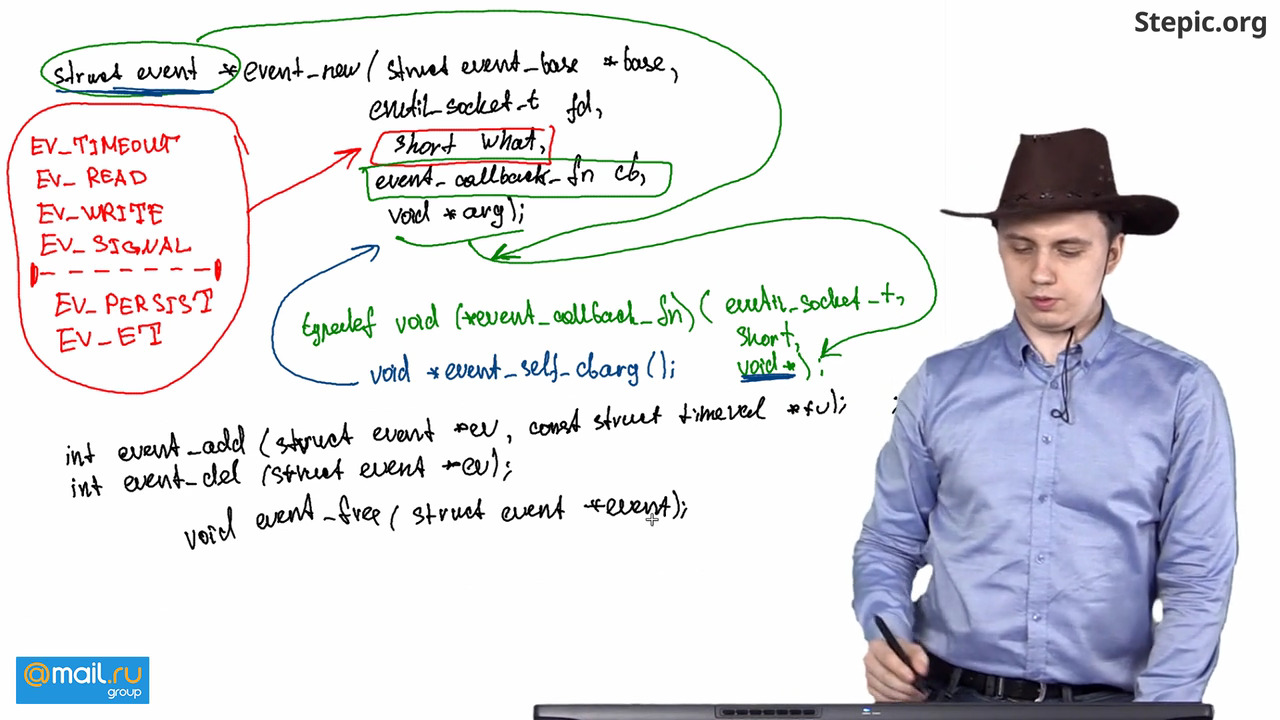 Stepic.org
struct event *event_new(struct event_base *base,
evutil_socket_t fd,
short what,
event_callback_fn cb,
void *arg);
EV_TIMEOUT
EV_READ
EV_WRITE
EV_SIGNAL
EV_PERSIST
EV_ET
typedef void (*event_callback_fn)(evutil_socket_t,
short,
void *);
void *event_self_cbarg();
int event_add (struct event *ev, const struct timeval *tv);
;
int event_del (struct event *ev);
void event_free (struct event *event);
@mail.ru
group